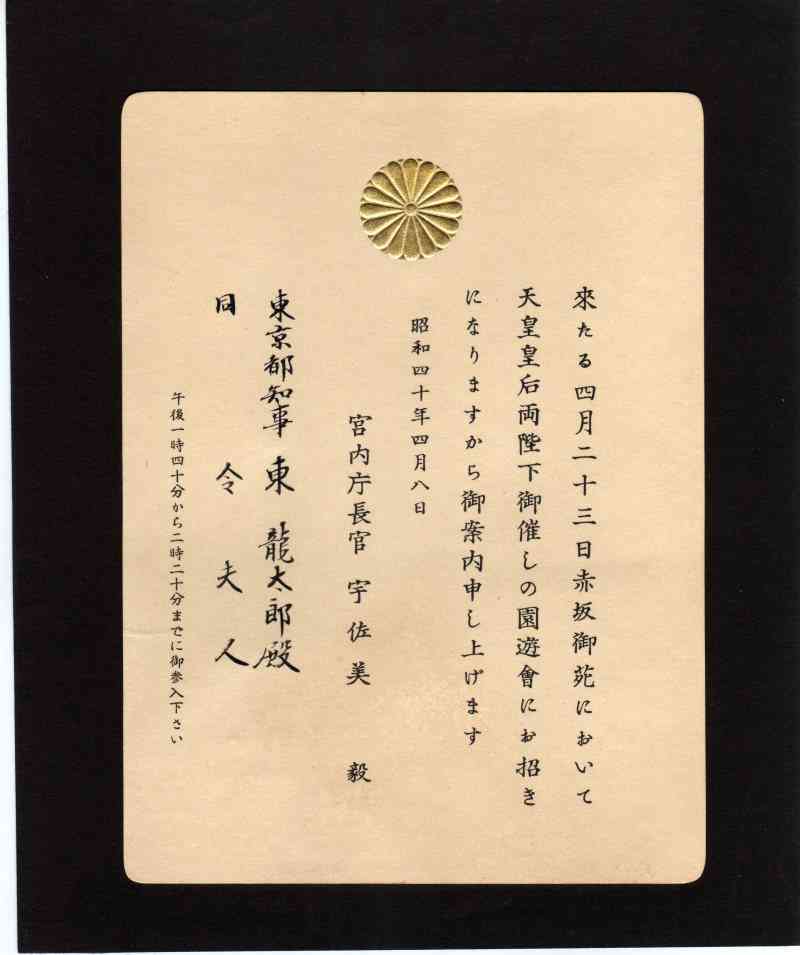 來たる四月二十三日赤坂御苑において
天皇皇后両陛下御催しの園遊會にお招き
になりますから御案内申し上げます
昭和四十年四月八日
宮内庁長官 宇佐美 毅
東京都知事 東 龍太郎殿
同 令夫人
午後一時四十分から二時二十分までに御参入下さい